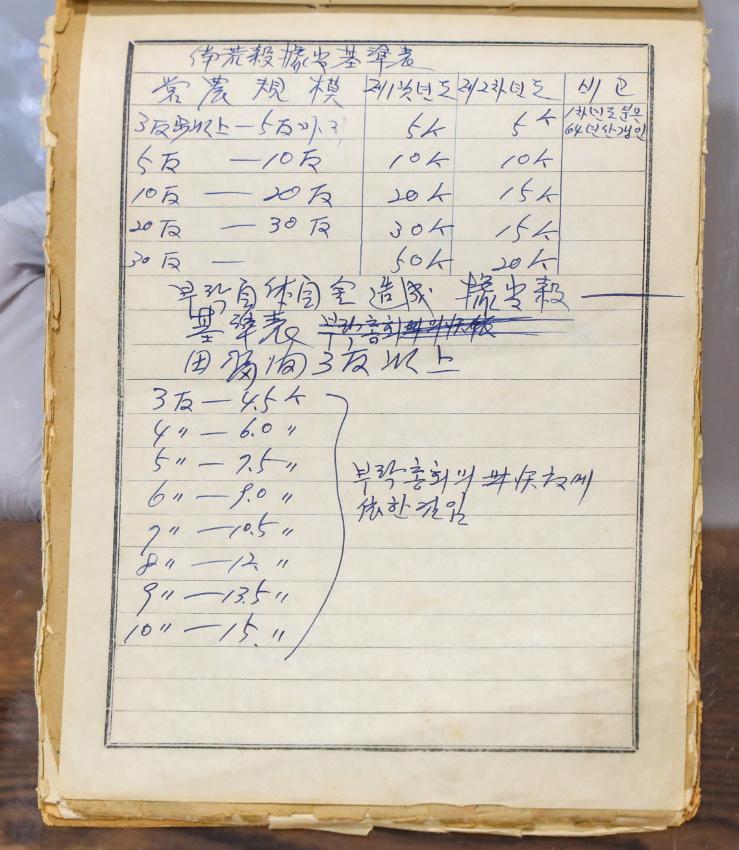 備荒穀據出基準表
営農規模 제1차년도 제2차년도 비고
3反步以上 — 5反까지 5升 5升 1차년도분은
64년산갱인
5反 — 10反 10升 10升
10反 — 20反 20升 15升
20反 — 30反 30升 15升
30反 — 50升 20升
부락自体自金造成 據出穀
基準表
田畓 3反以上
3反 — 4.5升
4〃 — 6.0〃
5〃 — 7.5〃
6〃 — 9.0〃
7〃 — 10.5〃
8〃 — 12.〃
9〃 — 13.5〃
10〃 — 15.〃
부락총회의
依한것임